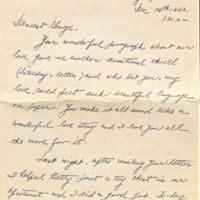 Dec. 14th, 1943
1:30 p.m.
Dearest George,
Your wonderful paragraph about our
love gave me another emotional thrill
(Saturday's letter) and who but you, my
love, could put such beautiful language
on paper. You make it all sound like a
wonderful love story and I love you all
the more for it.
Last night, after mailing your letter
I helped Betty paint a toy chest in our
apartment and I did a good job. To-day